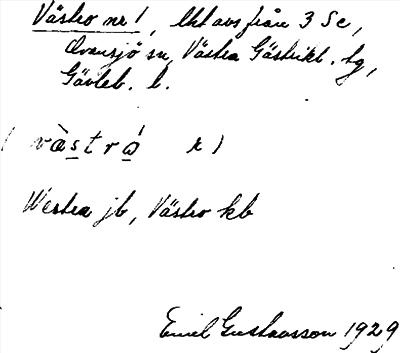 Västro nr 1, lht avs från 3 Se,
Ovansjö sn, Västra Gästrikl. tg,
Gävleb. l.
( vàstrò́ r )
Westra jb, Västro kb
Emil Gustavsson 1929